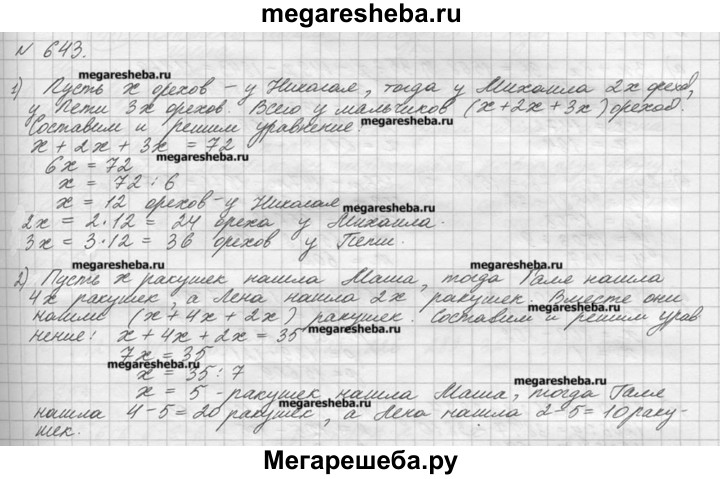 megaresheba.ru
N 643.
megaresheba.ru megaresheba.ru
1) Пусть x орехов - у Николая, тогда у Михаила 2x орехов,
у Пети 3x орехов. Всего у мальчиков (x+2x+3x) орехов.
Составим и решим уравнение: megaresheba.ru
x + 2x + 3x = 72
megaresheba.ru
6x = 72
x = 72 : 6
x = 12 орехов - у Николая megaresheba.ru
2x = 2·12 = 24 ореха у Михаила.
3x = 3·12 = 36 орехов у Пети.
megaresheba.ru megaresheba.ru
2) Пусть x ракушек нашла Маша, тогда Галя нашла
4x ракушек, а Лена нашла 2x ракушек. Вместе они
нашли (x+4x+2x) ракушек. Составим и решим урав-
нение: x + 4x + 2x = 35 megaresheba.ru
7x = 35
megaresheba.ru
x = 35 : 7
megaresheba.ru
x = 5 - ракушек нашла Маша, тогда Галя
megaresheba.ru
нашла 4-5=20 ракушек, а Лена нашла 2-5=10 раку-
шек.
megaresheba.ru
Мегарешеба.ру